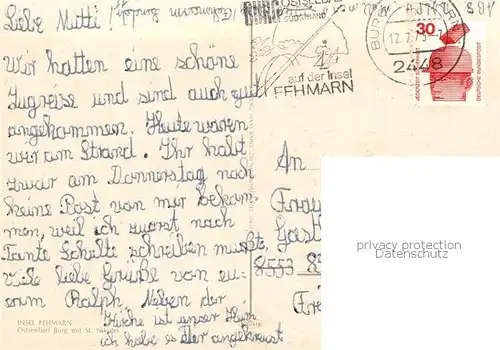 Liebe Mutti!
Wir hatten eine schöne
Zugreise und sind auch gut
angekommen. Heute waren
wir am Strand. Ihr habt
zwar am Donnerstag noch
keine Post von mir bekom-
men, weil ich zuerst nach
Tante Schulte schreiben mußte.
Viele liebe Grüße von eu-
erm Ralph Neben der
Kirche ist unser Heim
ich habe es hier angekreuzt
INSEL FEHMARN
Ostseebad Burg mit St.
BURG
OSTSEEBAD
SÜDSTRAND
auf der Insel
FEHMARN
BURG
12.7.73
2448
30
DEUTSCHE BUNDESPOST
An
8553
privacy protection
Datenschutz